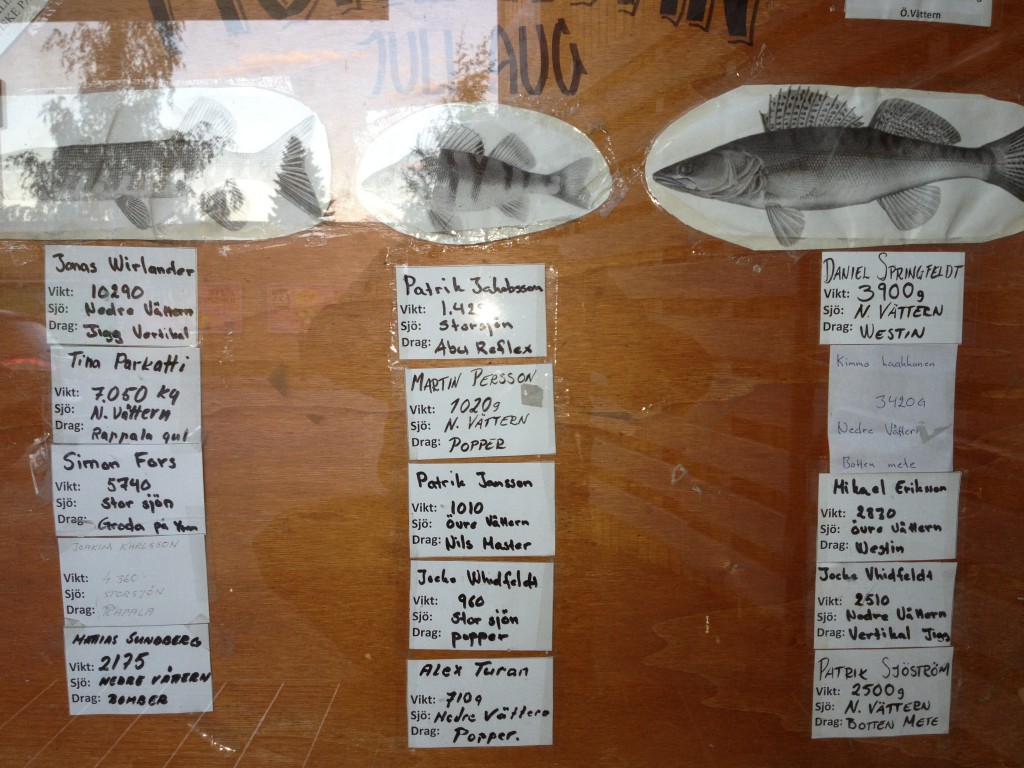 Ö.Vättern
JULI AUG
Jonas Wirlander
Vikt: 10290
Sjö: Nedre Vättern
Drag: Jigg Vertikal
Tina Parkatti
Vikt: 7.050 kg
Sjö: N.Vättern
Drag: Rappala gul
Simon Fors
Vikt: 5740
Sjö: Stor sjön
Drag: Groda på
JOAKIM KARLSSON
Vikt: 4.360
Sjö: STORSJÖN
Drag: RAPALA
MATTIAS SUNDBERG
Vikt: 2175
Sjö: NEDRE VÄTTERN
Drag: BOMBER
Patrik Jakobsson
Vikt: 1.425
Sjö: Storsjön
Drag: Abu Reflex
MARTIN PERSSON
Vikt: 1020g
Sjö: N. VÄTTERN
Drag: POPPER
Patrik Jansson
Vikt: 1010
Sjö: Övre Vättern
Drag: Nils Master
Jocke Whidfeldt
Vikt: 960
Sjö: Stor sjön
Drag: popper
Alex Turan
Vikt: 710g
Sjö: Nedre Vättern
Drag: Popper.
DANIEL SPRINGFELDT
Vikt: 3900g
Sjö: N. VÄTTERN
Drag: WESTIN
Kimmo
3420G
Nedre Vättern
Botten mete
Mikael Eriksson
Vikt: 2870
Sjö: Övre Vättern
Drag: Westin
Jocke Vhidfeldt
Vikt: 2510
Sjö: Nedre Vättern
Drag: Vertikal Jigg
PATRIK SJÖSTRÖM
Vikt: 2500g
Sjö: N. VÄTTERN
Drag: BOTTEN METE